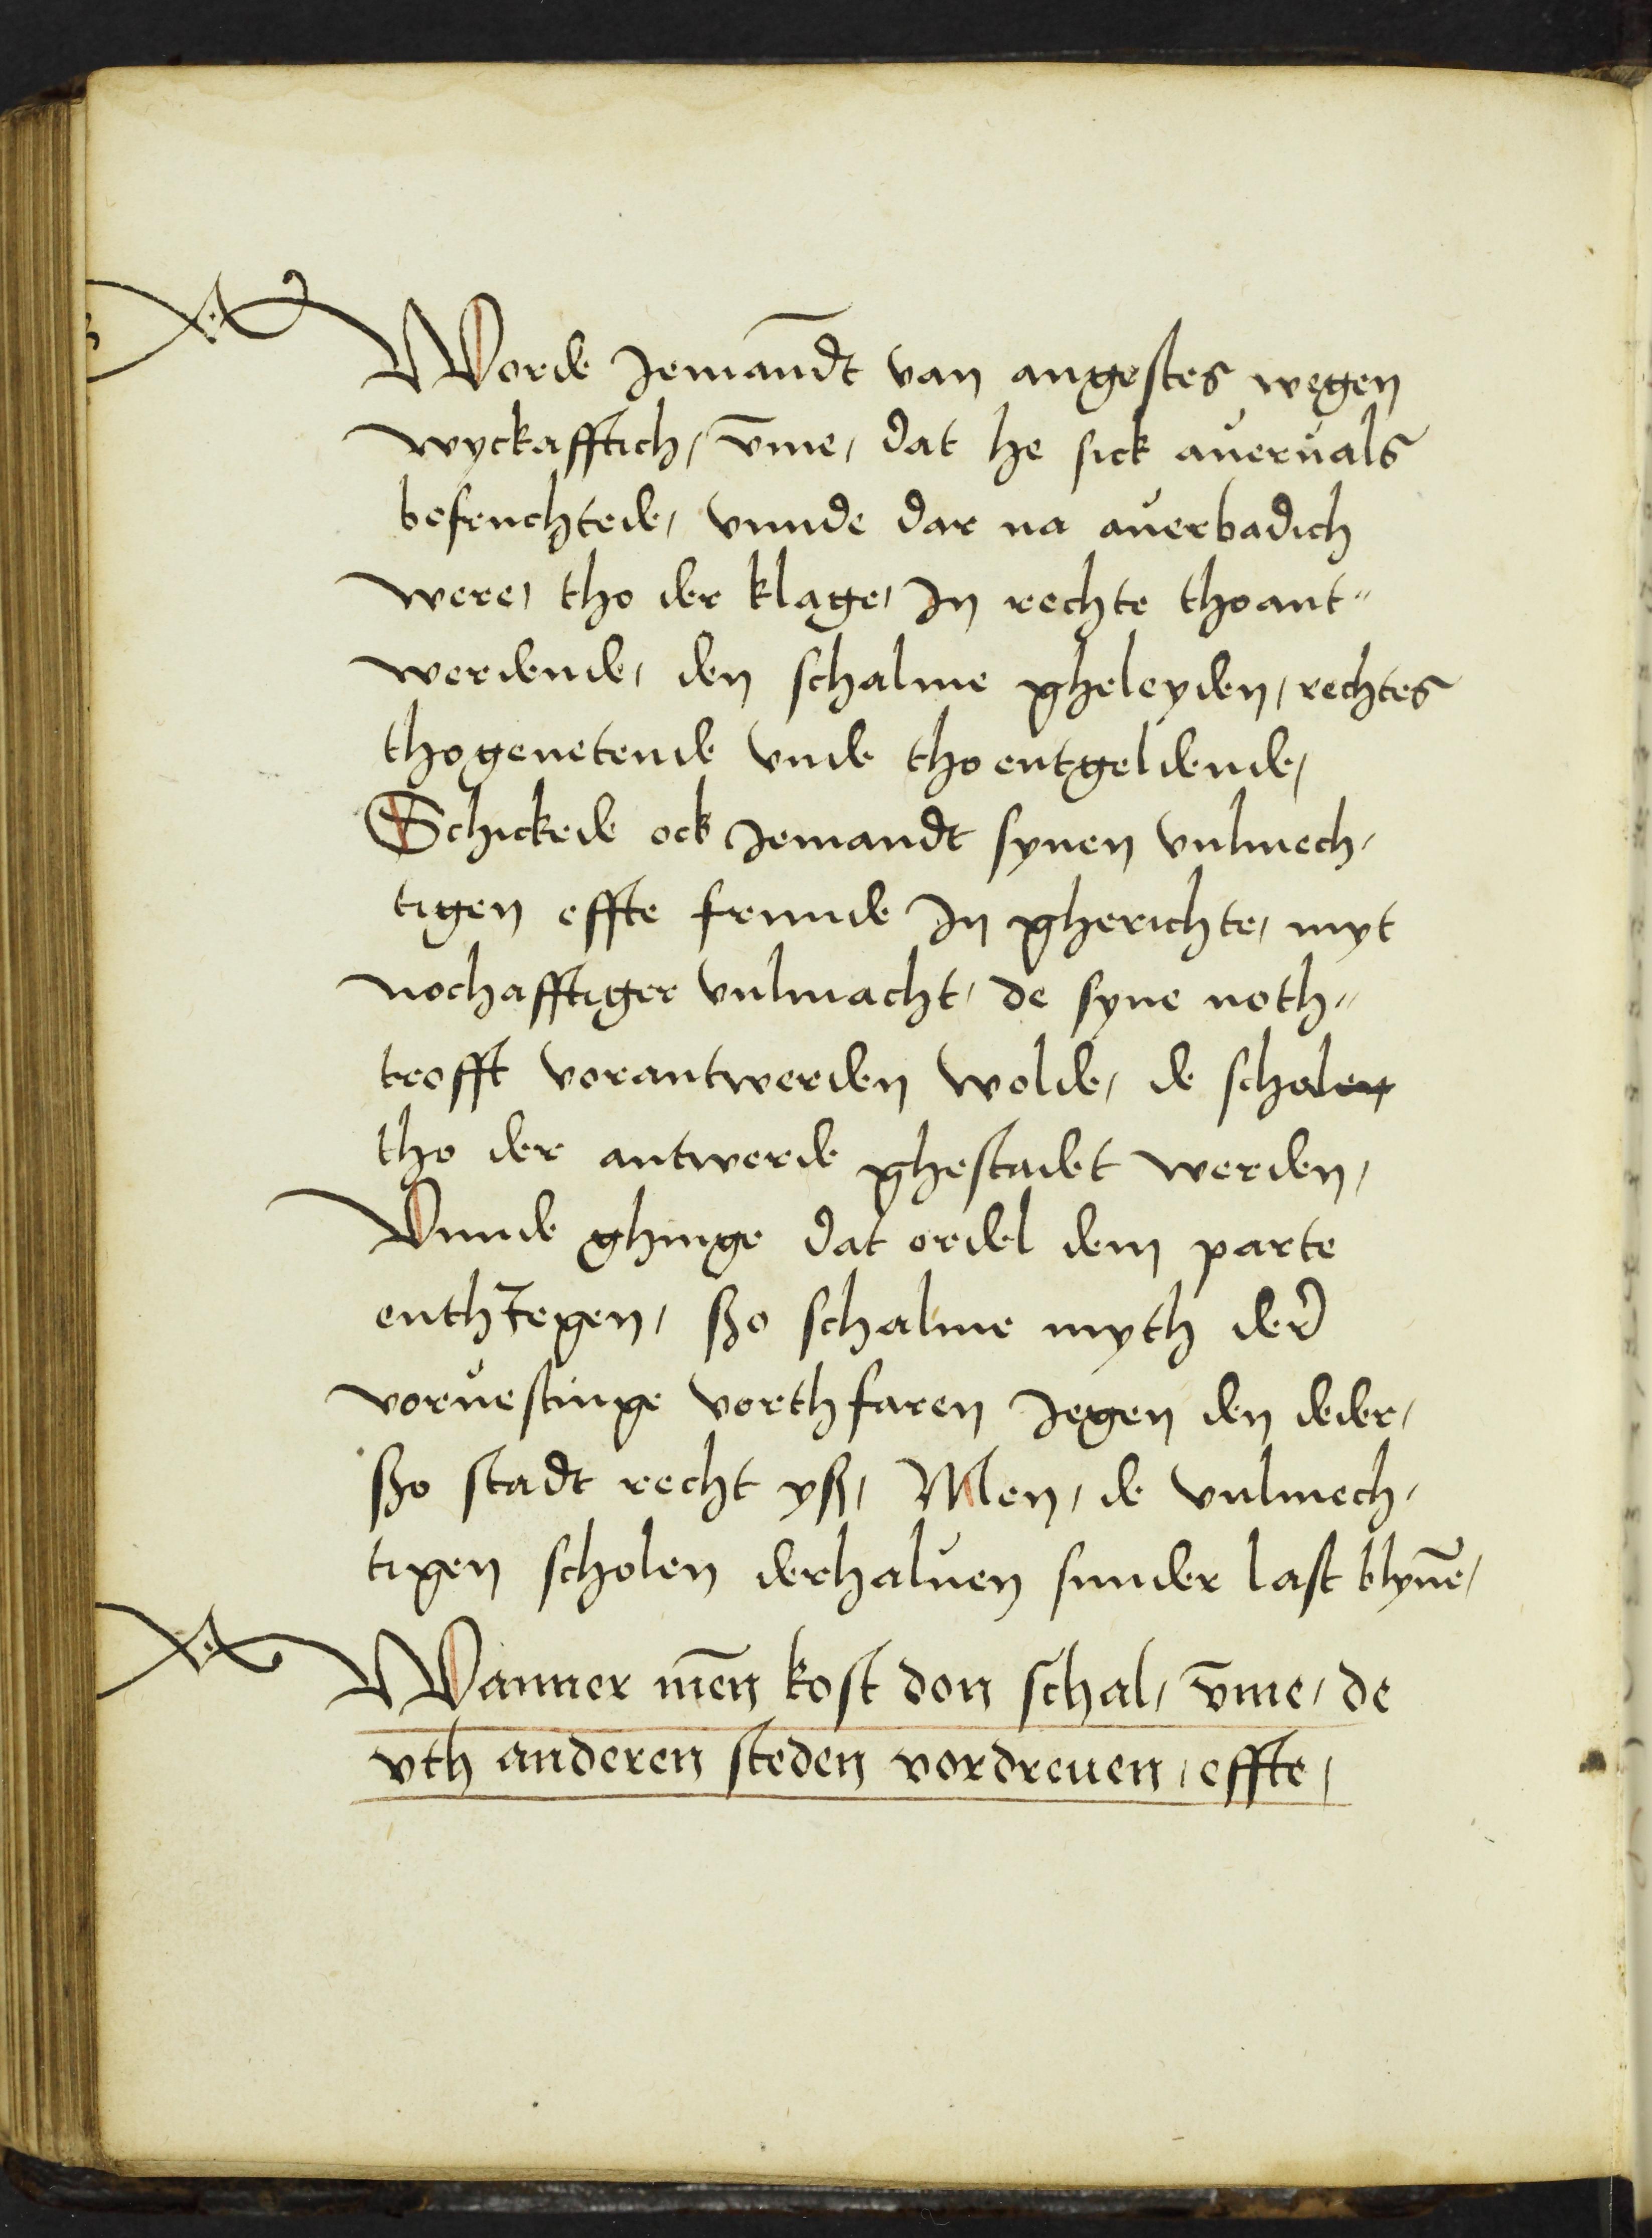 Worde Jemandt van angestes wegen
wyckafftich, v̄me, dat he sick aueruals
befruchtede, vnnde dar na auerbadich
were, tho der klage, In rechte thoant„
werdende, den schalme gheleyden, rechtes
thogenetende vnde thoentgeldende,
Schickede ock Jemandt synen vulmech,
tigen effte frunde In gherichte, myt
nochafftiger vulmacht, de syne noth„
trofft vorantwerden wolde, de scholen
tho der antwerde ghestadet werden,
Vnnde ghinge dat ordel dem parte
enthJegen, ßo schalme myth der
voruestinge vorthfaren Jegen den deder,
ßo stadt recht yß, Men, de vulmech,
tigen scholen derhaluen sunder last blyuē,
Wanner mēn kost don schal, v̄me, de
vth anderen steden vordreuen, effte,